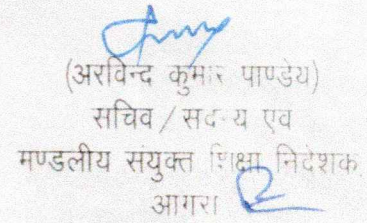 (अरविन्द कुमार पाण्डेय)
सचिव / सदस्य एव
मण्डलीय संयुक्त शिक्षा निदेशक
आगरा